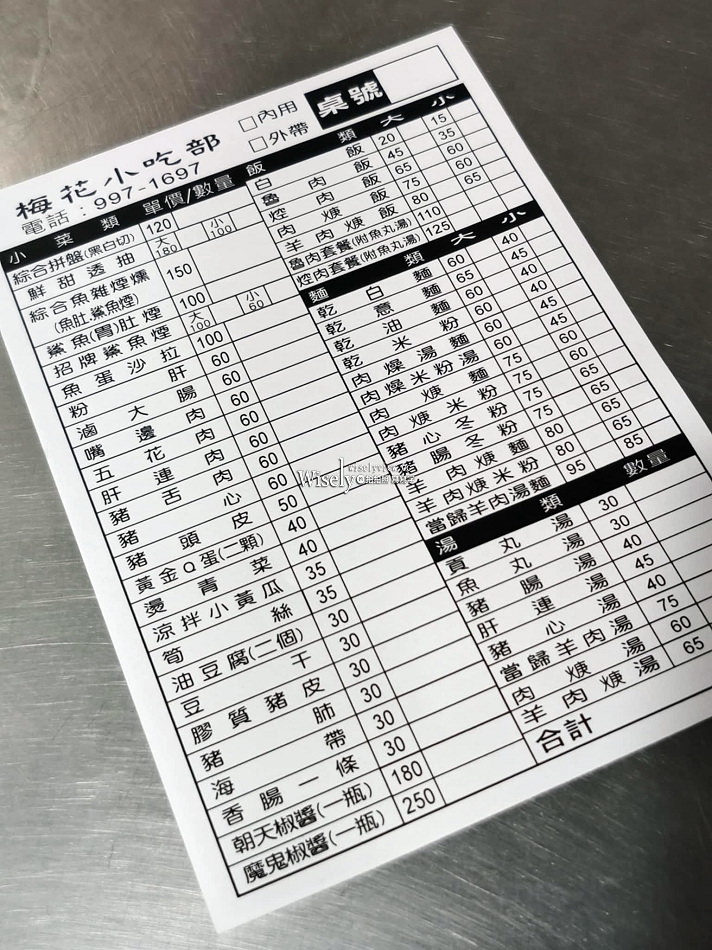 梅花小吃部
電話:997-1697
□內用
□外帶
桌號
小菜類 單價/數量
綜合拼盤(黑白切) 120
鮮甜透抽 大180 小100
綜合魚雜煙燻(魚肚.鯊魚煙) 150
鯊魚(胃)肚煙 100
招牌鯊魚煙 大100 小60
魚蛋沙拉 100
粉肝 60
滷大腸 60
嘴邊肉 60
五花肉 60
肝連肉 60
豬舌 60
豬心 60
豬頭皮 50
黃金Q蛋(二顆) 40
燙青菜 40
涼拌小黃瓜 35
筍絲 35
油豆腐(二個) 30
豆干 30
膠質豬皮 30
豬肺 30
海帶 30
香腸一條 30
朝天椒醬(一瓶) 180
魔鬼椒醬(一瓶) 250
飯類 大 小
白飯 20 15
魯肉飯 45 35
焢肉飯 65 60
肉焿飯 75 60
羊肉焿飯 80 65
魯肉套餐(附魚丸湯) 110
焢肉套餐(附魚丸湯) 125
麵類 大 小
乾白麵 60 40
乾意麵 65 45
乾油麵 60 40
乾米粉 60 40
肉燥湯麵 65 45
肉燥米粉湯 65 45
肉焿麵 75 60
肉焿米粉 75 60
豬心冬粉 75 65
豬腸冬粉 75 65
羊肉焿麵 80 65
羊肉焿米粉 80 65
當歸羊肉湯麵 95 85
湯類 數量
貢丸湯 30
魚丸湯 30
豬腸湯 40
肝連湯 45
豬心湯 40
當歸羊肉湯 75
肉焿湯 60
羊肉焿湯 65
合計
Wisely